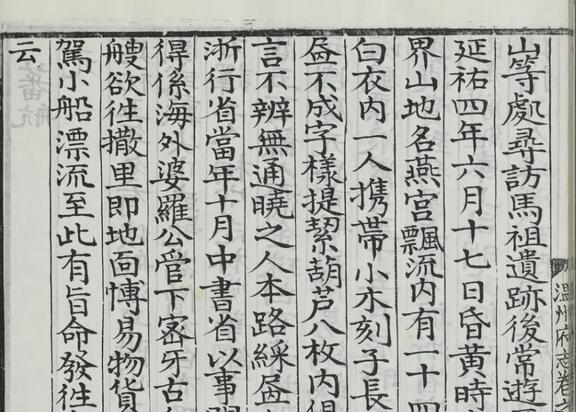 山等處尋訪馬祖遺跡後常遊
延祐四年六月十七日昏黃時
界山地名燕宮飄流內有一十四
白衣內一人携帶小木刻子長
畫不成字樣提挈葫芦八枚內
言不辨無通曉之人本路綵畫
浙行省當年十月中書省以事
得係海外婆羅公管下密牙古
艘欲徃撒里即地面博易物貨
駕小船漂流至此有旨命發徃
云
温州府志卷